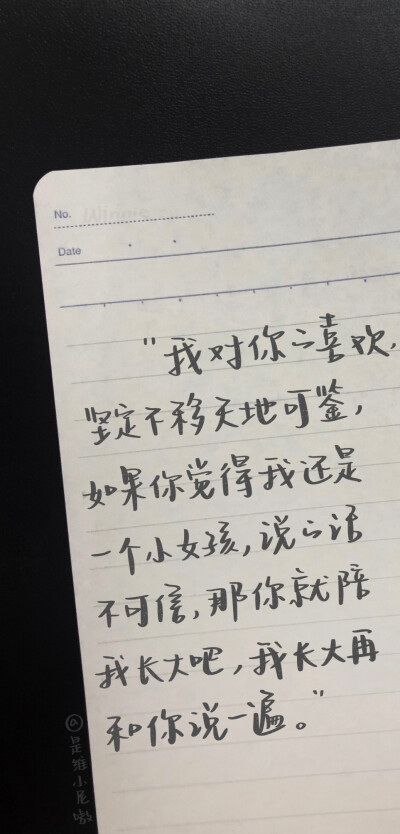 No.
Date
"我对你的喜欢,
坚定不移天地可鉴,
如果你觉得我还是
一个小女孩,说的话
不可信,那你就陪
我长大吧,我长大再
和你说一遍。"
@是维小尾